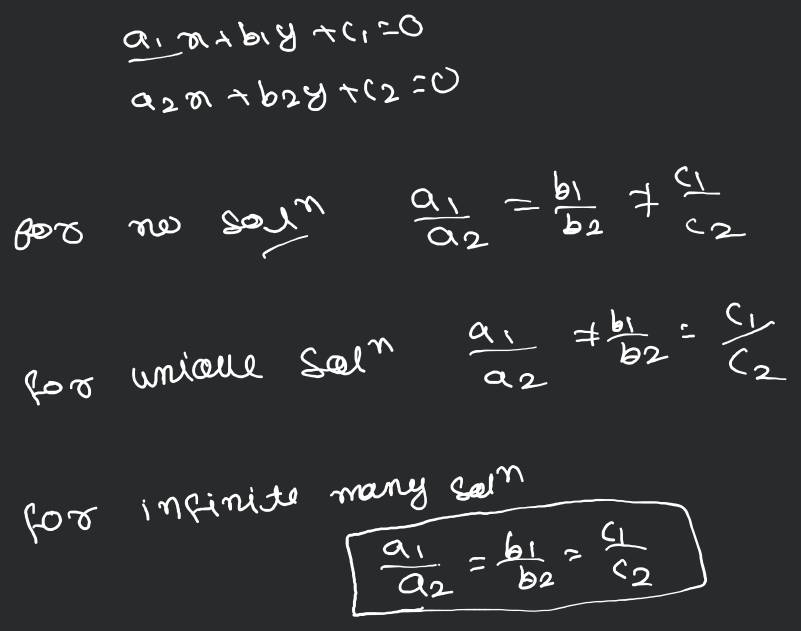 a₁x + b₁y + c₁ = 0
a₂x + b₂y + c₂ = 0
for no solⁿ a₁/a₂ = b₁/b₂ ≠ c₁/c₂
for unique solⁿ a₁/a₂ ≠ b₁/b₂ = c₁/c₂
for infinite many solⁿ
a₁/a₂ = b₁/b₂ = c₁/c₂